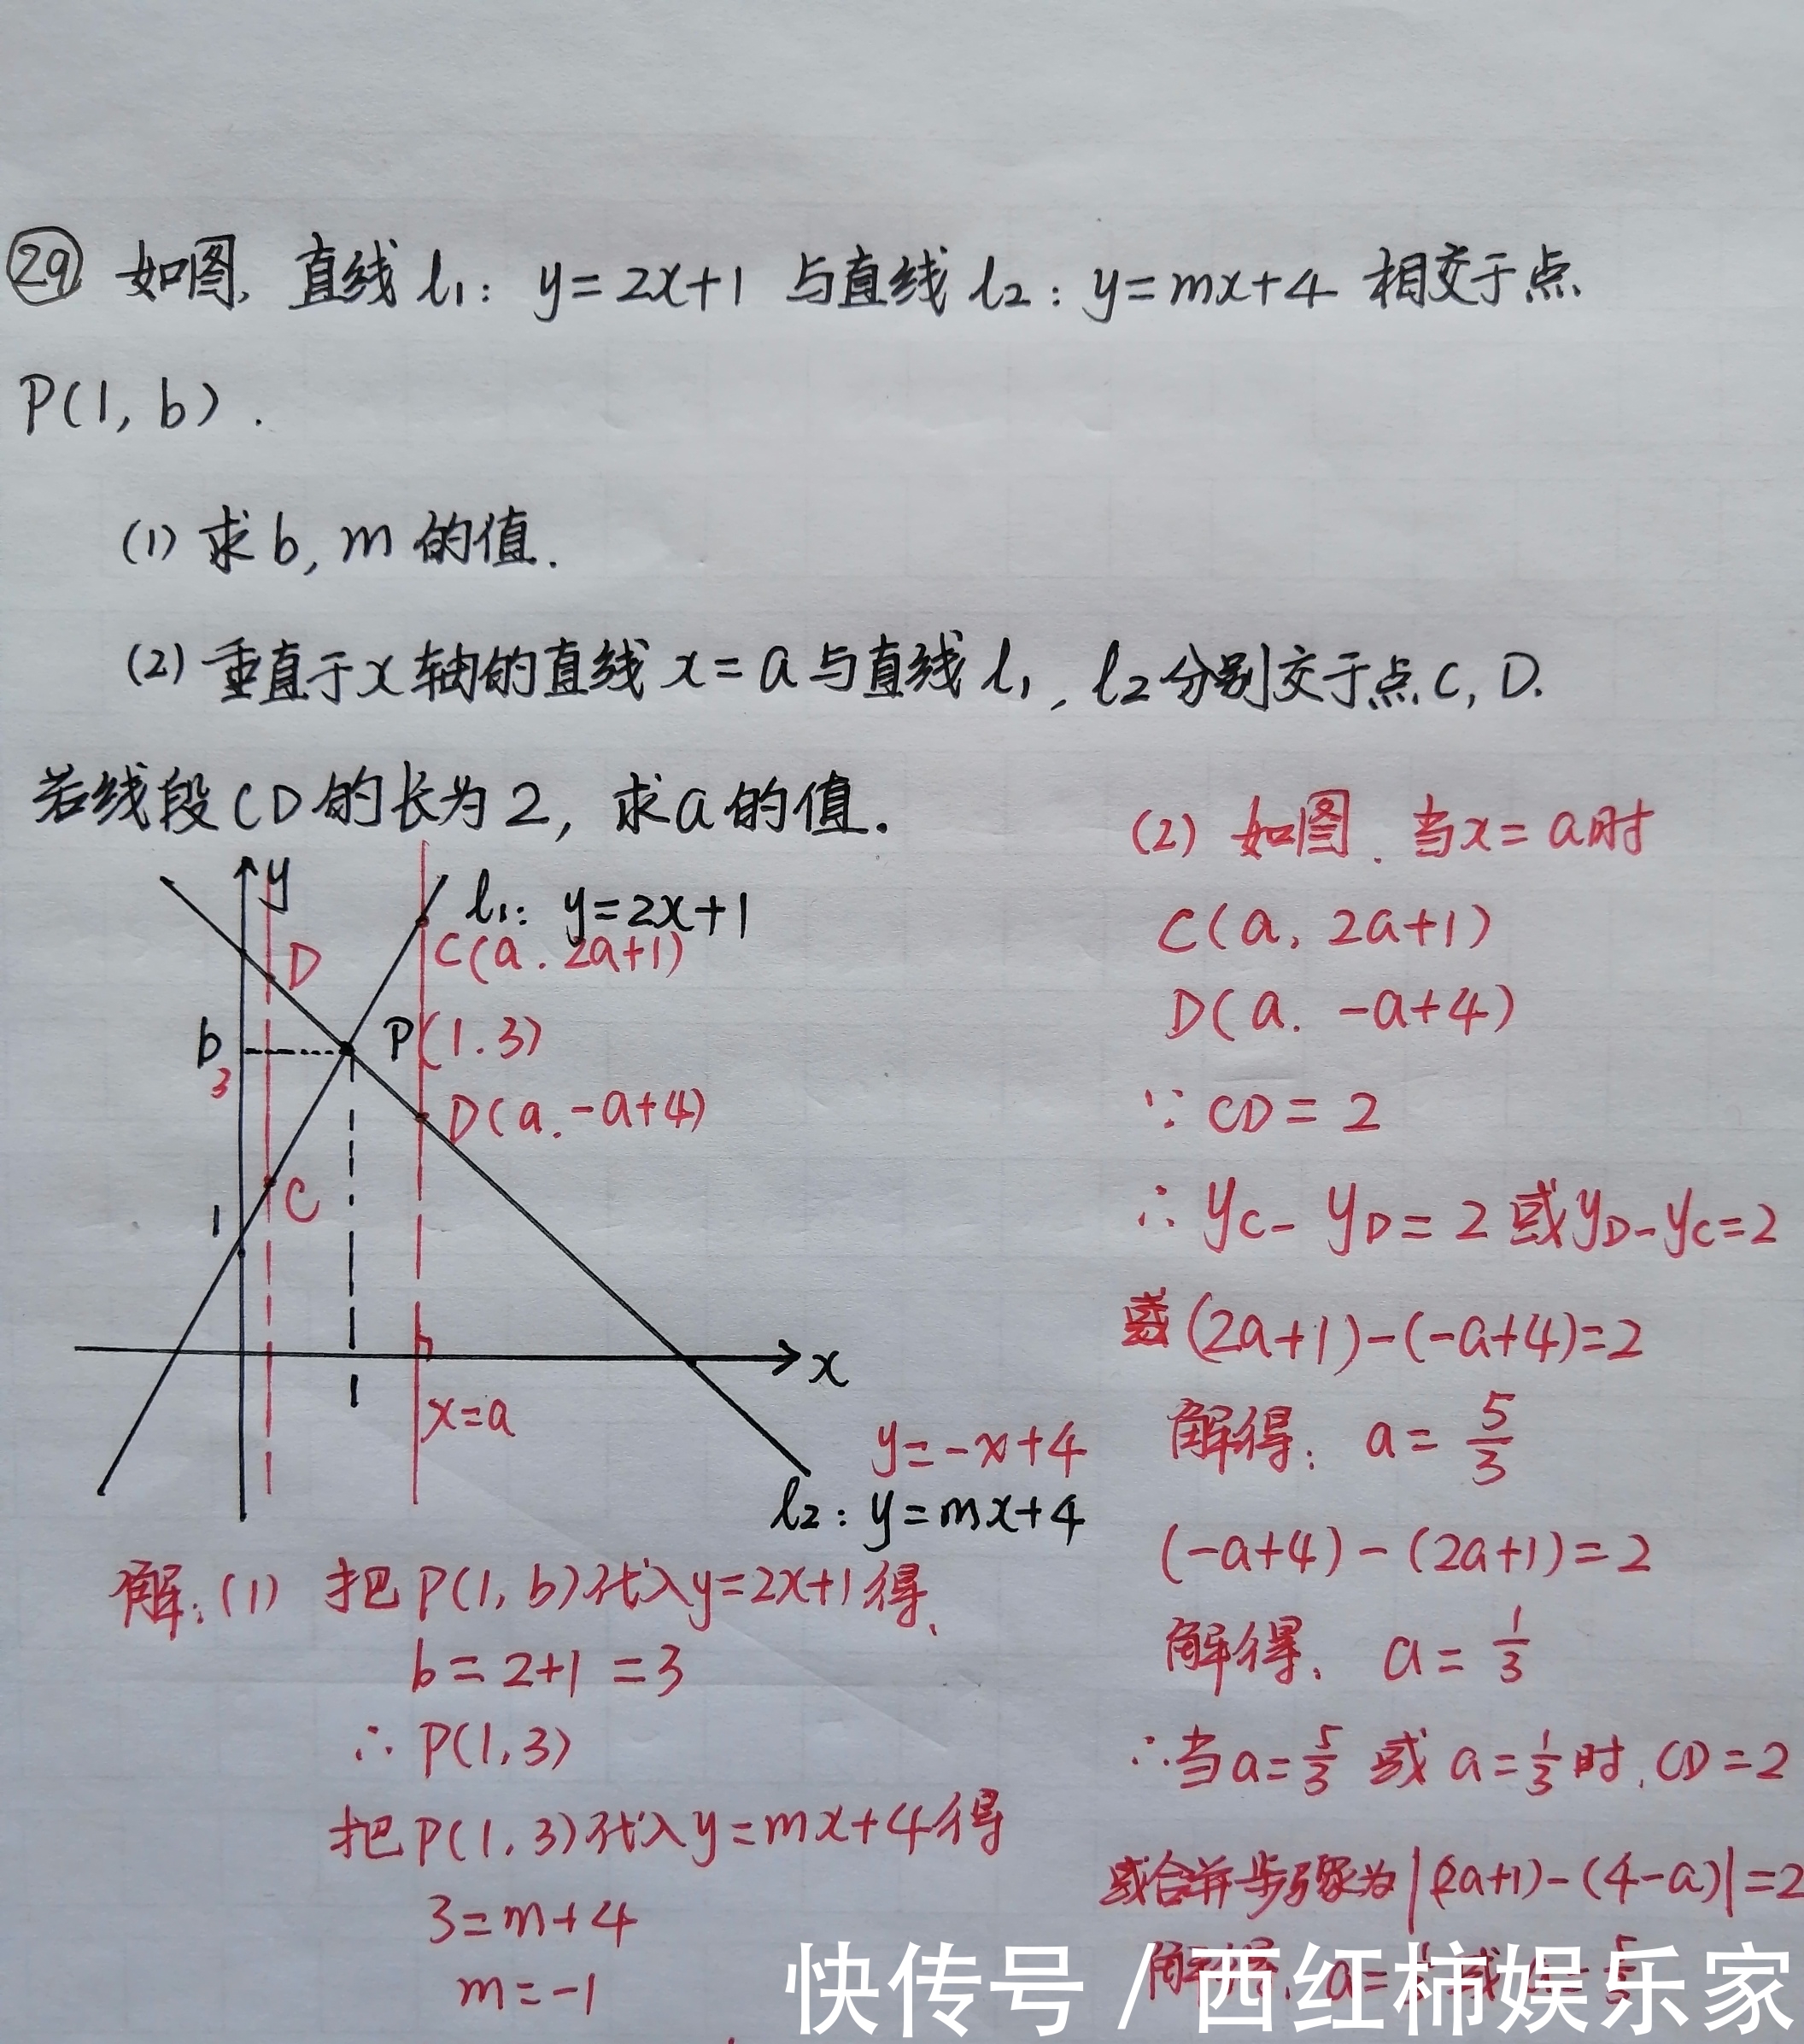 29 如图, 直线 l₁: y=2x+1 与直线 l₂: y=mx+4 相交于点
P(1, b).
(1) 求 b, m 的值.
(2) 垂直于 x 轴的直线 x=a 与直线 l₁, l₂ 分别交于点 C, D.
若线段 CD 的长为 2, 求 a 的值.
y
l₁: y=2x+1
C(a. 2a+1)
D
b
3
P(1.3)
D(a. -a+4)
C
1
1
x
x=a
y=-x+4
l₂: y=mx+4
解:(1) 把 P(1, b) 代入 y=2x+1 得、
b=2+1=3
∴ P(1,3)
把 P(1,3) 代入 y=mx+4 得
3=m+4
m=-1
(2) 如图、当 x=a 时
C(a, 2a+1)
D(a. -a+4)
∵ CD=2
∴ yC-yD=2 或 yD-yC=2
(2a+1)-(-a+4)=2
解得: a=5/3
(-a+4)-(2a+1)=2
解得、a=1/3
∴当 a=5/3 或 a=1/3 时, CD=2
或合并步骤为 |(2a+1)-(4-a)|=2
解得, a=
快传号 / 西红柿娱乐家